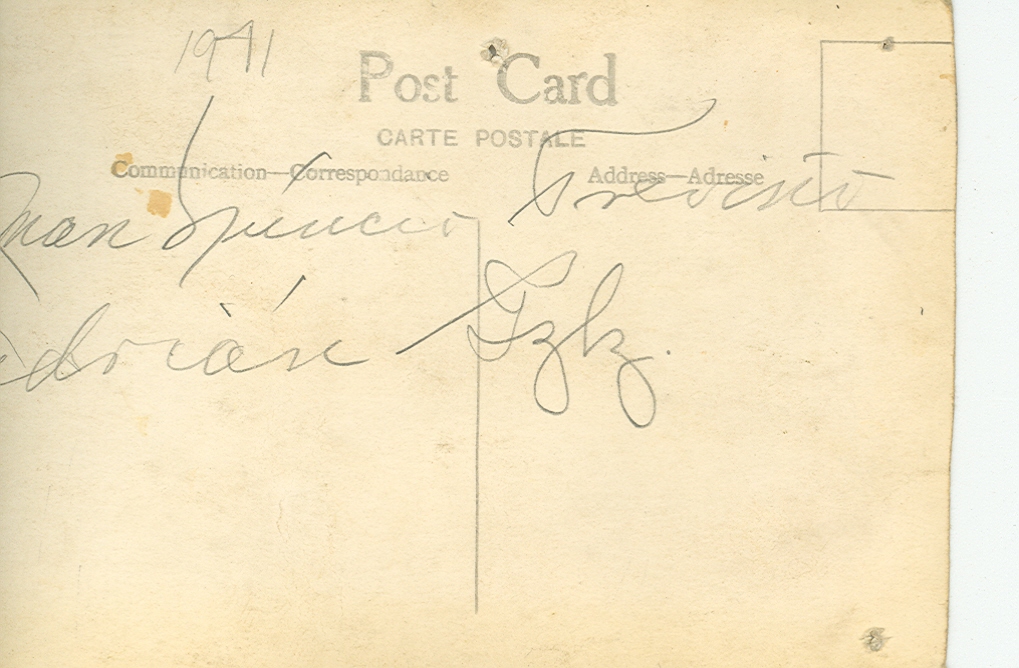 1941
Post Card
CARTE POSTALE
Communication—Correspondance Address—Adresse
Treviño
Adrián Gzz.